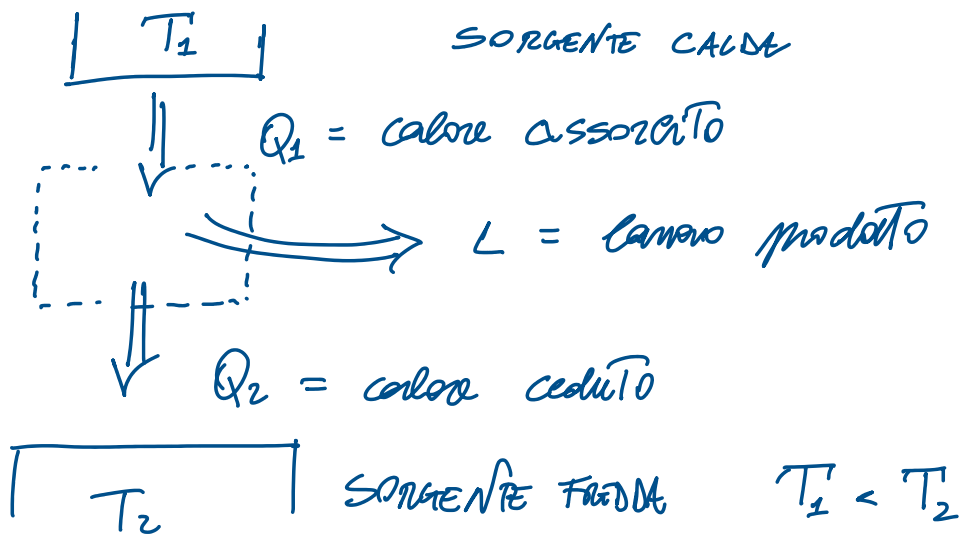 T1 SORGENTE CALDA
Q1 = calore assorbito
L = lavoro prodotto
Q2 = calore ceduto
T2 SORGENTE FREDDA T1 < T2